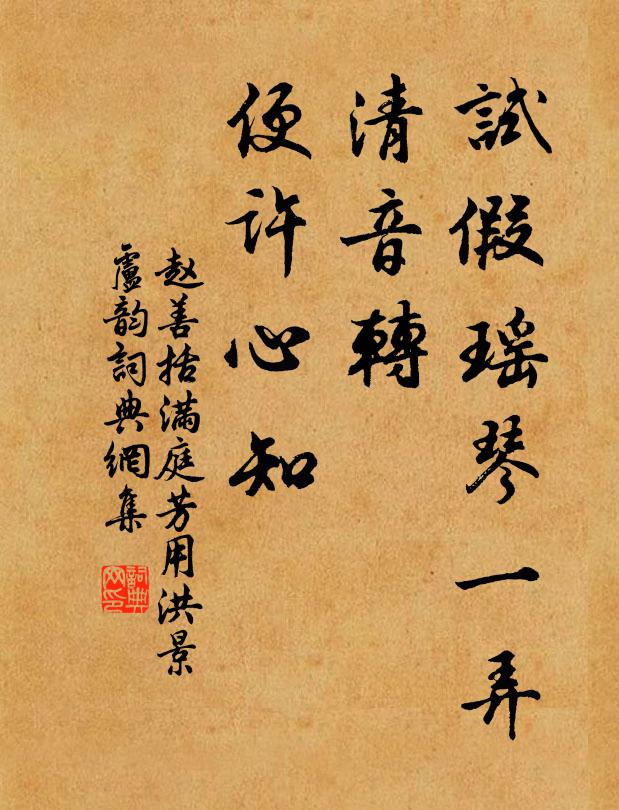 試假瑶琴一弄
清音轉
便许心知
赵善括满庭芳用洪景
廬韵詞典網集
詞典
网印